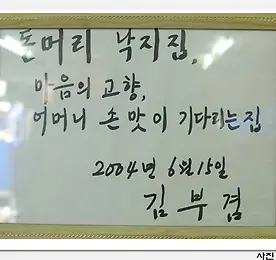 돈머리 낙지집,
마음의 고향,
어머니 손맛이 기다리는집
2004년 6월15일
김부겸
사진